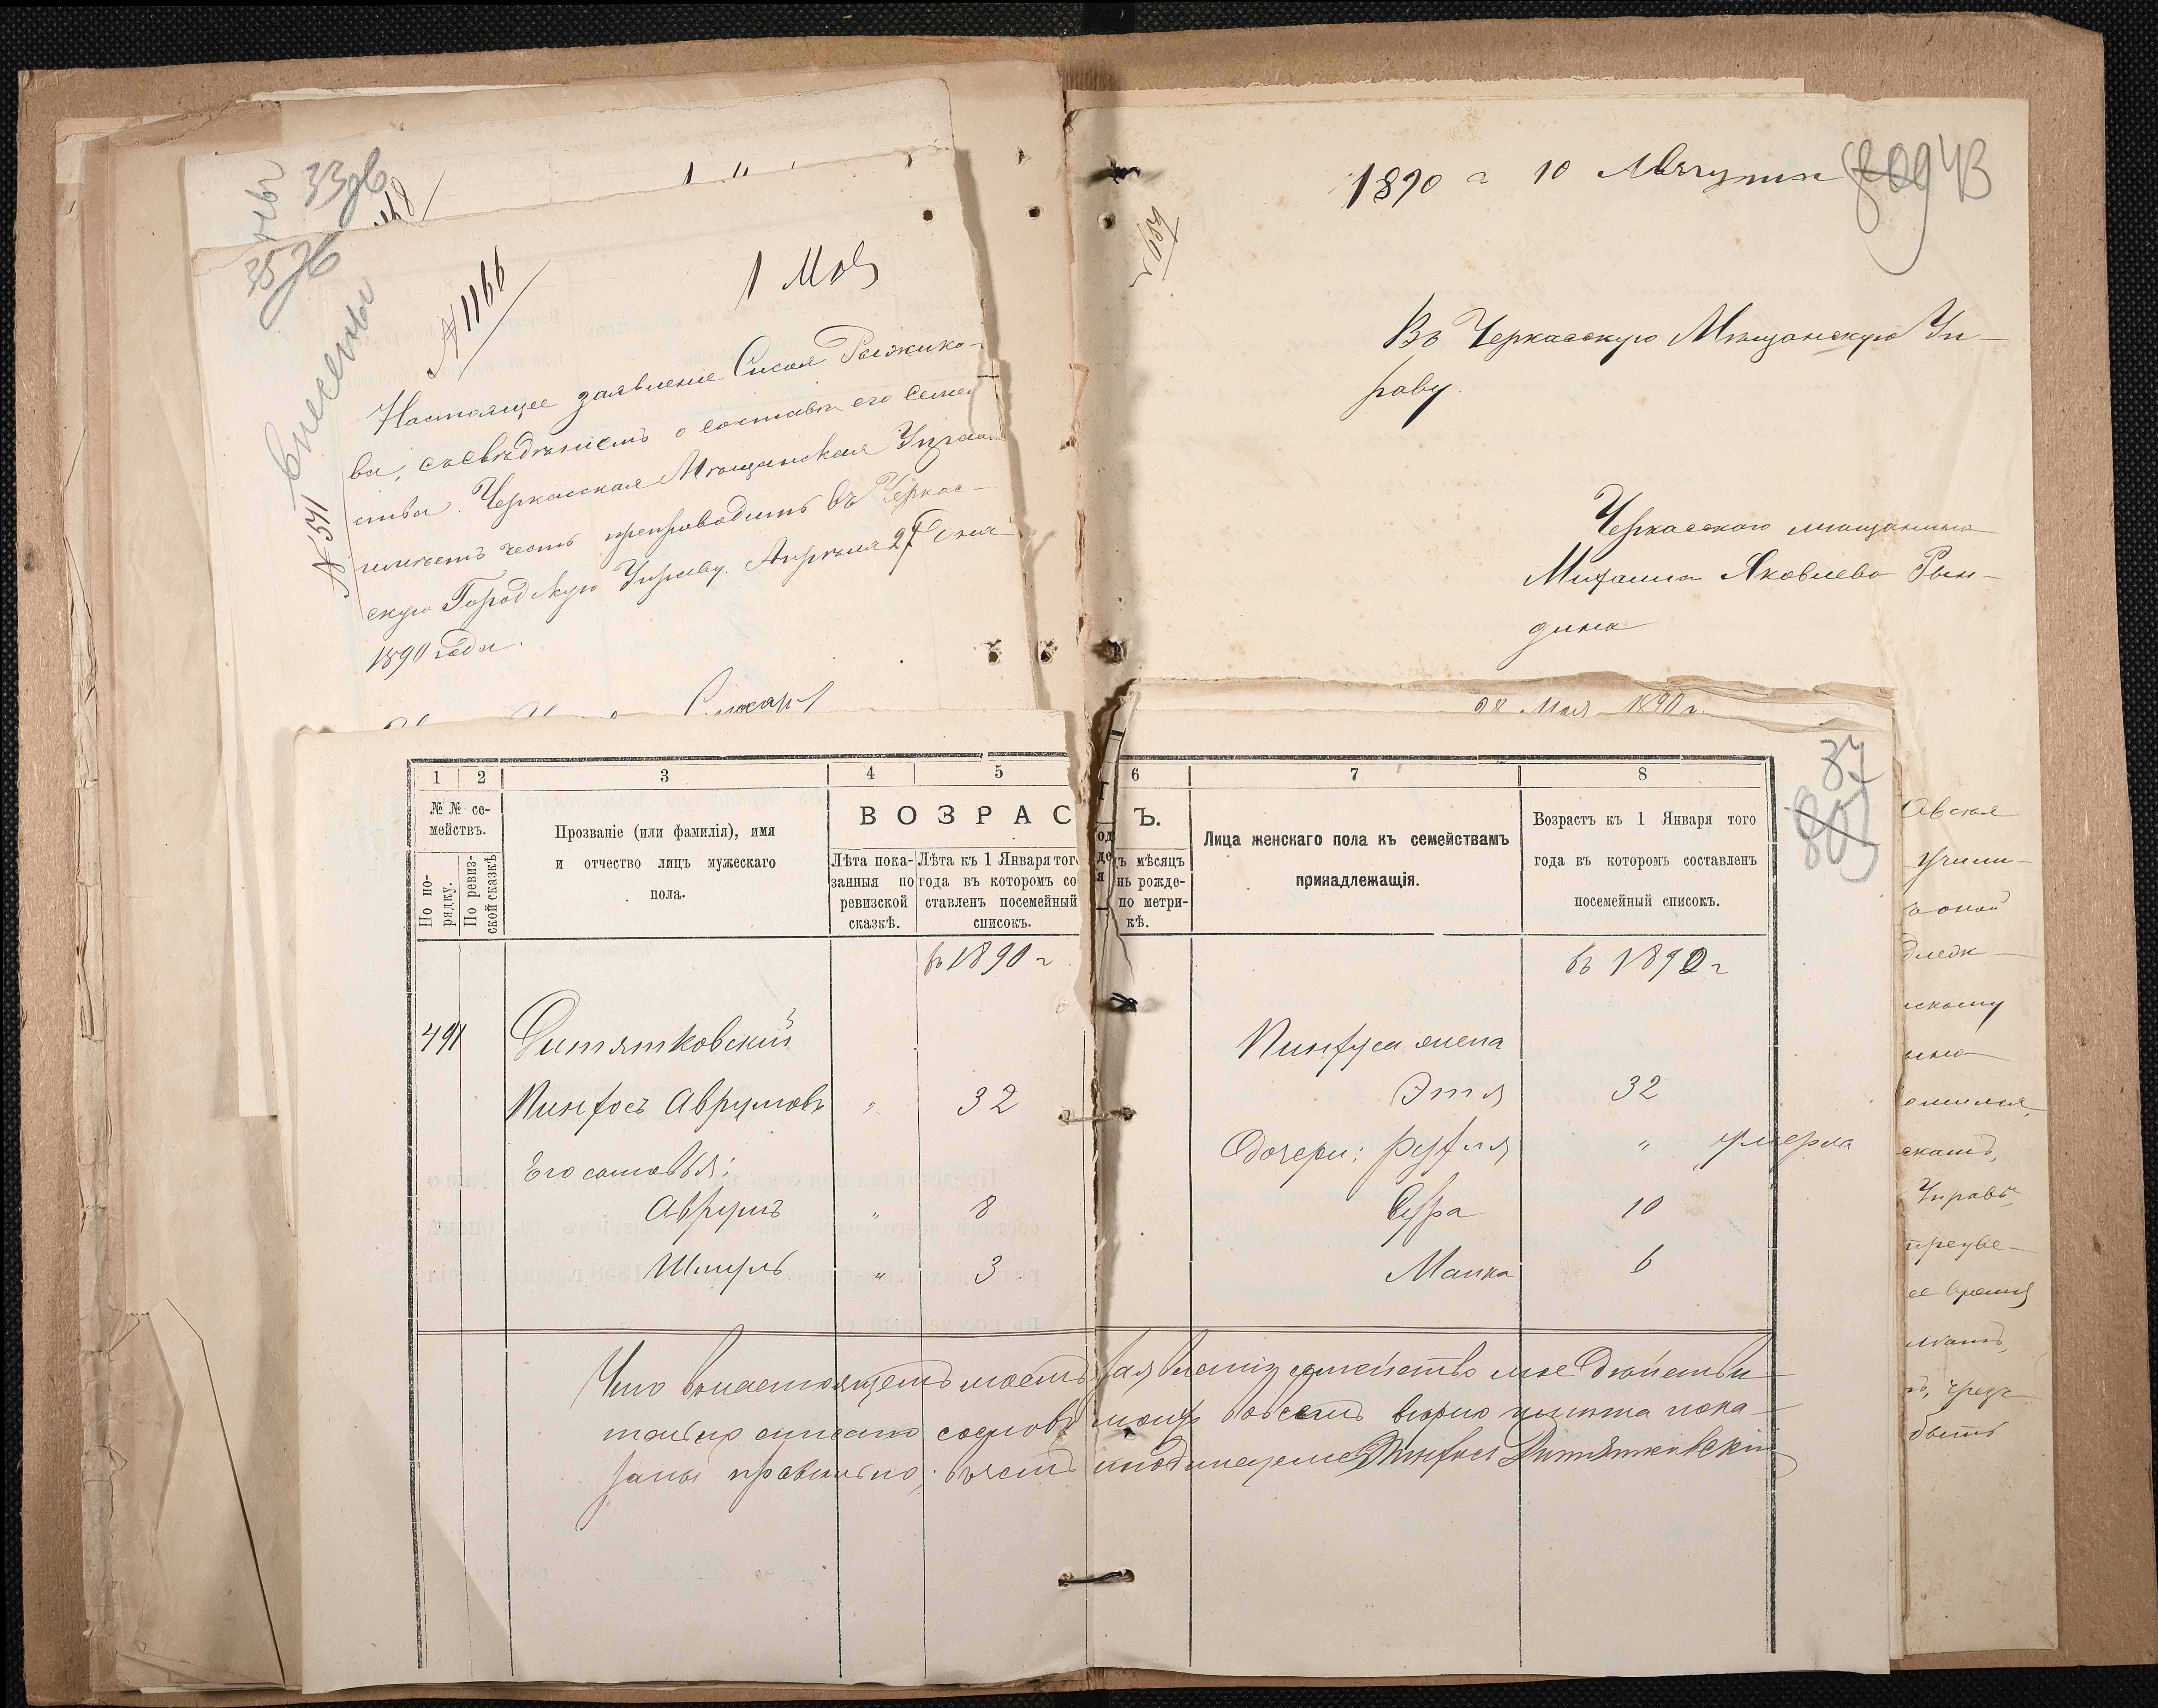 33 об
35 об
внесены
№ 571
№ 1166
1 Мая
Настоящее заявление Сысоя Рыжико-
ва, съ сведениемъ о составе его семей
ства Черкасская Мещанская Управа
имеетъ честь препроводить въ Черкас-
скую Городскую Управу. Апреля 27 дня
1890 года.
1890 г 10 Августа
809 43
Въ Черкасскую Мещанскую Уп-
раву.
Черкасского мещанина
Михаила Яковлева Рын-
дина
28 Мая 1890 г.
37
807
1 2 3 4 5 6 7 8
№ № се-
мействъ.
По по-
рядку.
По ревиз-
ской сказкѣ
Прозваніе (или фамилія), имя
и отчество лицъ мужескаго
пола.
ВОЗРАС Ъ.
Лѣта пока-
занныя по
ревизской
сказкѣ.
Лѣта къ 1 Января того
года въ которомъ со
ставленъ посемейный
списокъ.
ъ мѣсяцъ
нь рожде-
по метри-
кѣ.
Лица женскаго пола къ семействамъ
принадлежащія.
Возрастъ къ 1 Января того
года въ которомъ составленъ
посемейный списокъ.
въ 1890 г въ 1890 г
491 Дитятковский Пинхуса жена
Пинхосъ Аврумовъ " 32 Этя 32
Его сыновья: Дочери: Рухля " умерла
Аврумъ " 8 Сура 10
Шмуль " 3 Манка 6
Что въ настоящемъ моемъ заявлении семейство мое действи-
тельно списано
заны правильно, въ чемъ и подписуюсь Пинхос Дитятковский
авская
учили-
оной
скому
Управе,
время
чрез
быть